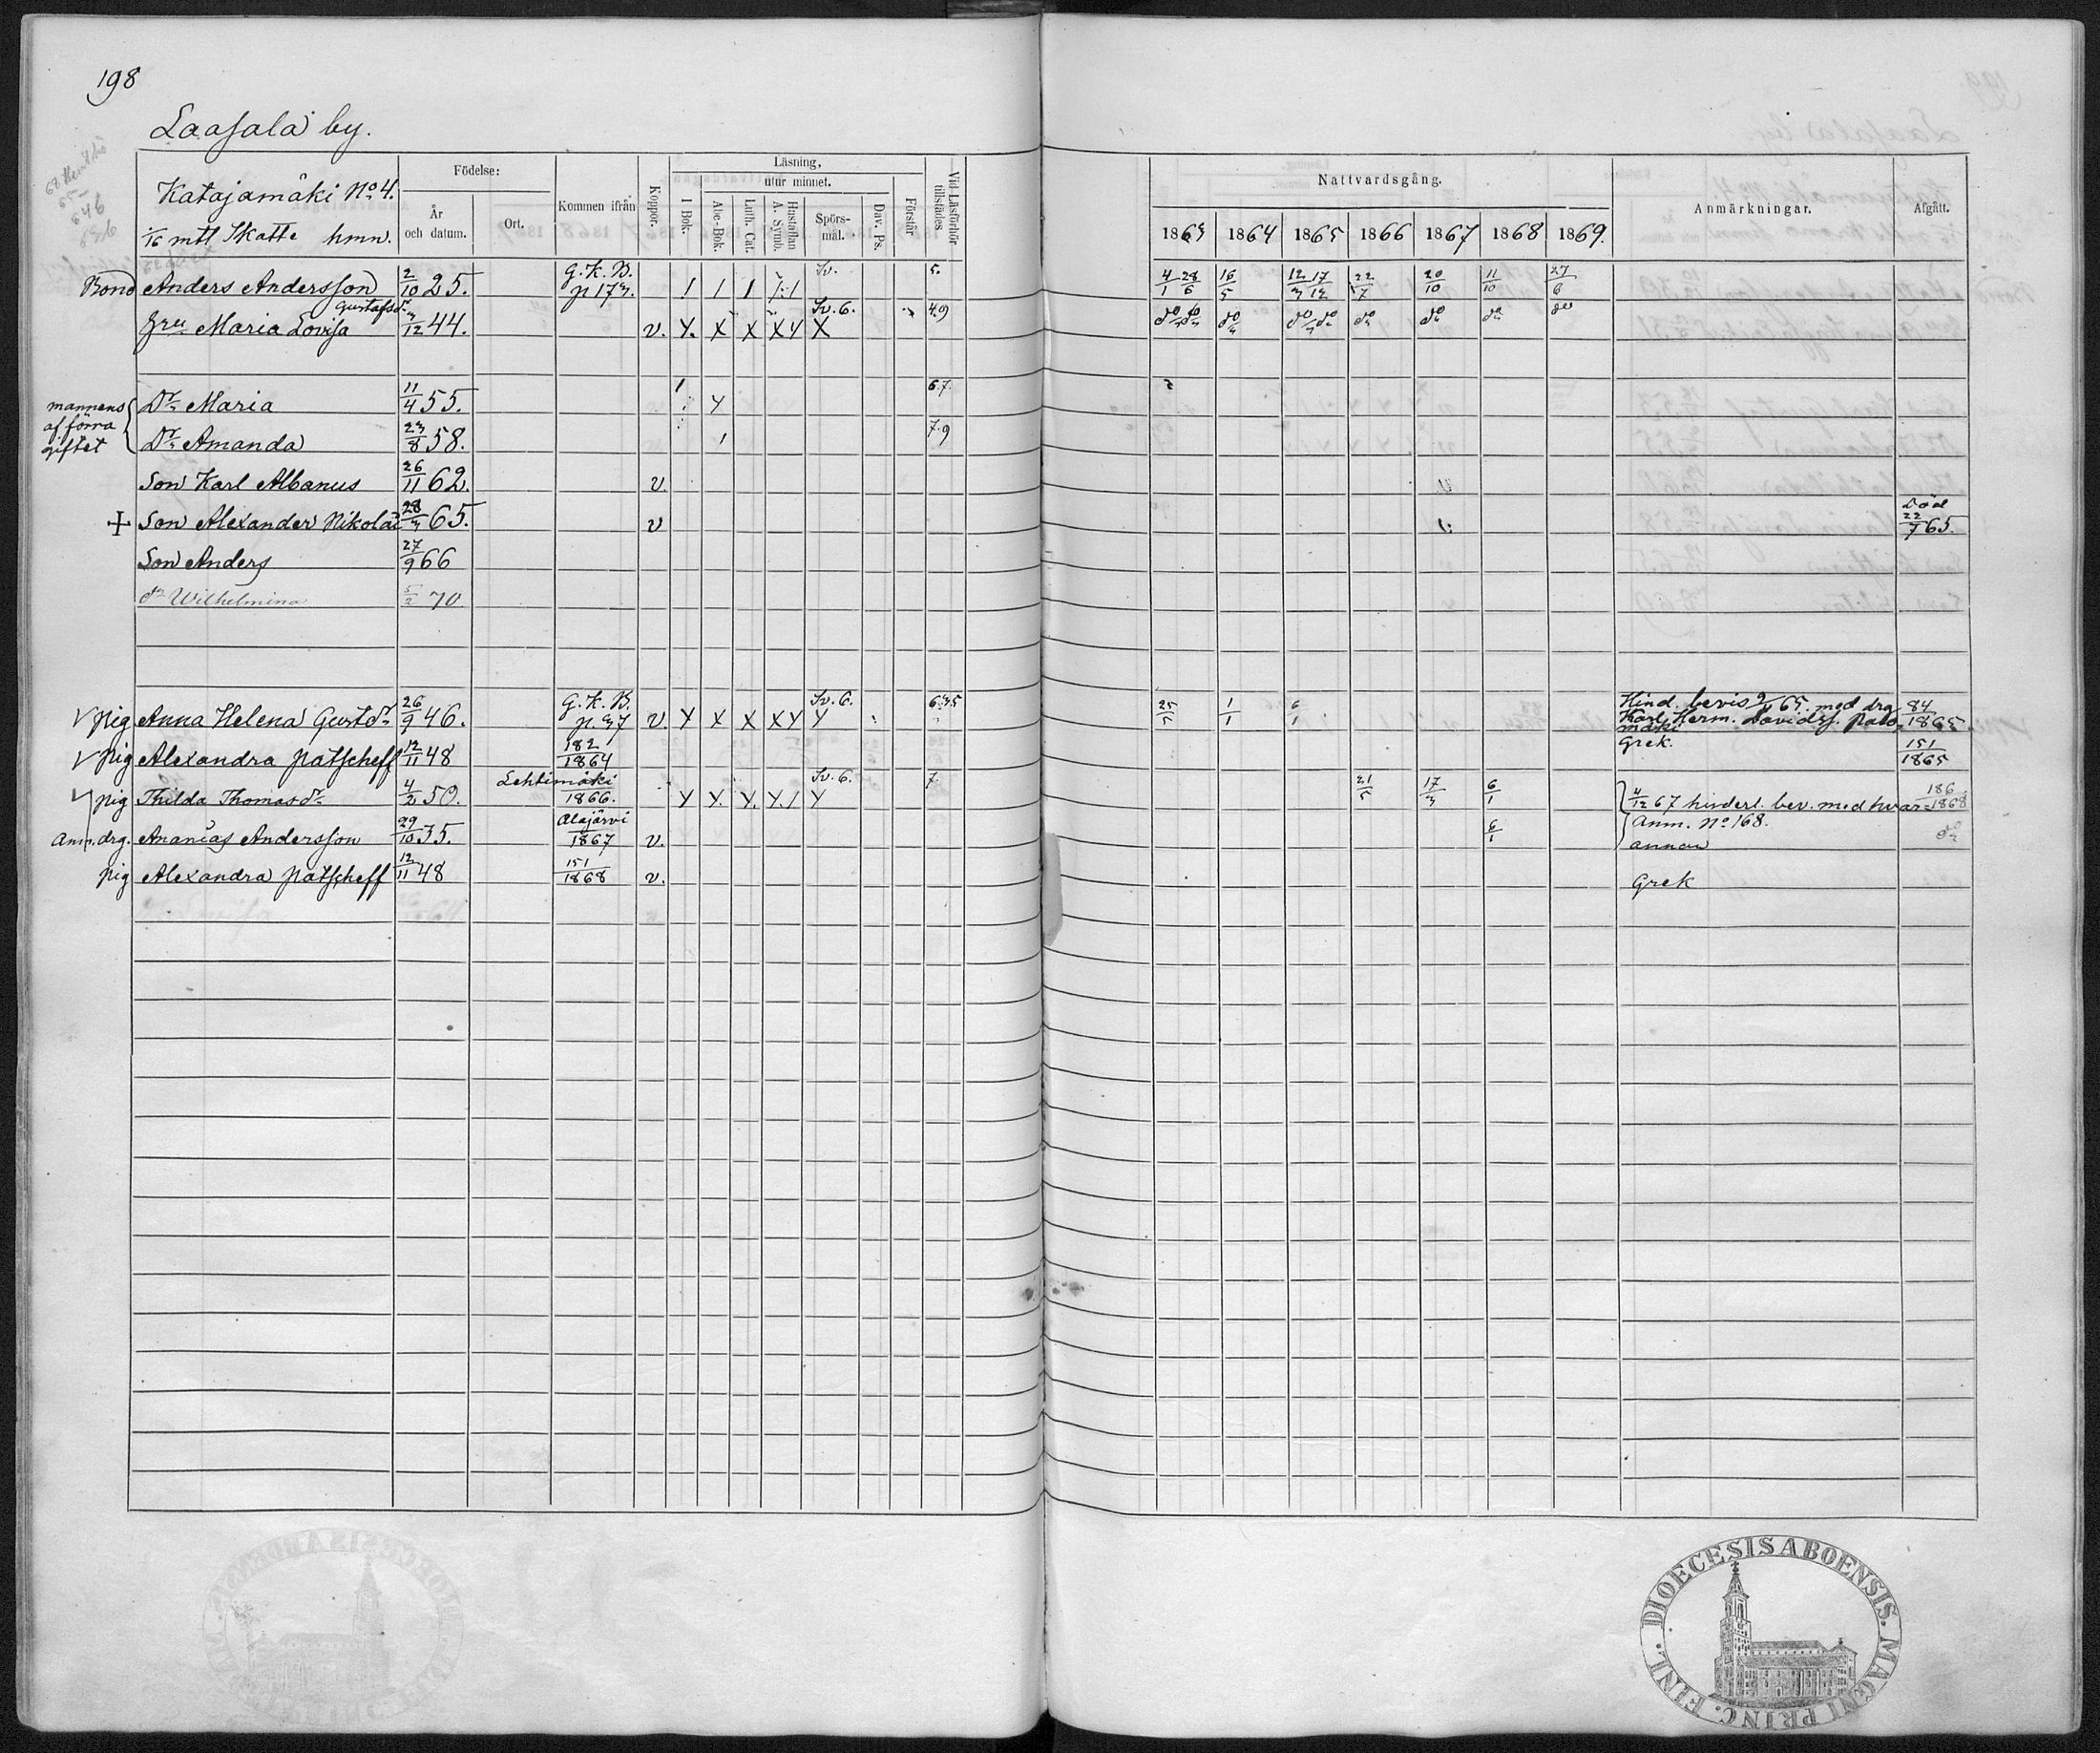 198
Laasala by.
Katajamäki No 4.
1/16 mtl Skatte hmn.
Födelse:
År och datum.
Ort.
Kommen ifrån
Koppor.
Läsning,
utur minnet.
I Bok.
Abc-Bok.
Luth. Cat.
Hustaflan A. Symb.
Spörsmål.
Dav. Ps.
Förstår
Vid Läsförhör tillstädes.
Nattvardsgång.
1863 1864 1865 1866 1867 1868 1869.
Anmärkningar.
Afgått.
Bond Anders Andersson 2/10 25. G. K. B. p 173. Sv. 5. 4/1 28/6 16/5 12/3 17/12 22/7 20/10 11/10 27/6
Gustafsdr
Hru Maria Lovisa 3/12 44. v. Y. X X X Y X Sv. 6. 4.9 do do do do do do do do do
mannens af förra giftet
Dr Maria 11/4 55. Y 6.7.
Dr Amanda 23/8 58. 7.9
Son Karl Albanus 26/11 62. v.
+ Son Alexander Nikolai 28/3 65. v Död 22/7 65.
Son Anders 27/9 66
dr Wilhelmina 5/2 70
pig Anna Helena Gustdr 26/9 46. G. K. B. p. 37 v. Y X X X Y Y Sv. 6. 6.35 25/5 1/1 6/1 Hind. bevis 9/4 65. med drg Karl Herm. Davidss. Palomäki 84/1865
pig Alexandra Patscheff 12/11 48 182/1864 Grek. 151/1865
pig Thilda Thomasdr 4/2 50. Lehtimäki 1866. Y Y. Y. Y. / Y Sv. 6. 7. 21/5 17/3 6/1 4/12 67 hinderl. bev. med hvar- 186/1868
Anm. drg. Ananias Andersson 29/10 35. Alajärvi 1867 v. 6/1 Anm. No 168. annan do
pig Alexandra Patscheff 12/11 48 151/1868 v. Grek
DIOECESIS ABOENSIS. MAGNI PRINC. FINL.